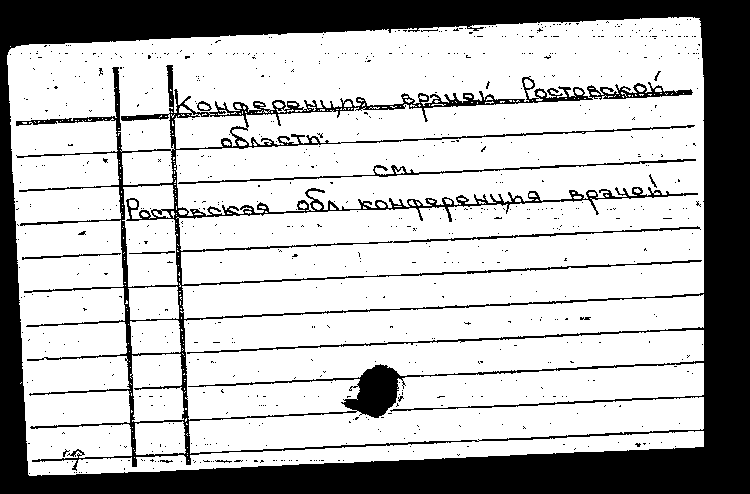 Конференция врачей Ростовской
области.
см.
Ростовская обл. конференция врачей.